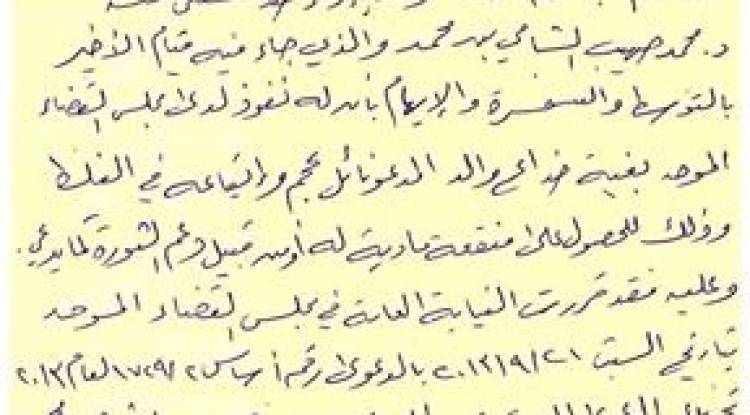 د. محمد حبيب الشامي بن محمد والذي جاء فيه قيام الأخير
بالتوسط والسمسرة والإيهام بأن له نفوذ لدى مجلس القضاء
الموحد بغية خداع والد المدعو نائل عجم وإيقاعه في الغلط
وذلك للحصول على منفعة مادية له أو من قبيل دعم الثورة كما يدعي.
وعليه فقد قررت النيابة العامة في مجلس القضاء الموحد
بتاريخ السبت ٢٠١٣/٩/٢١ بالدعوى رقم أساس لعام ٢٠١٣